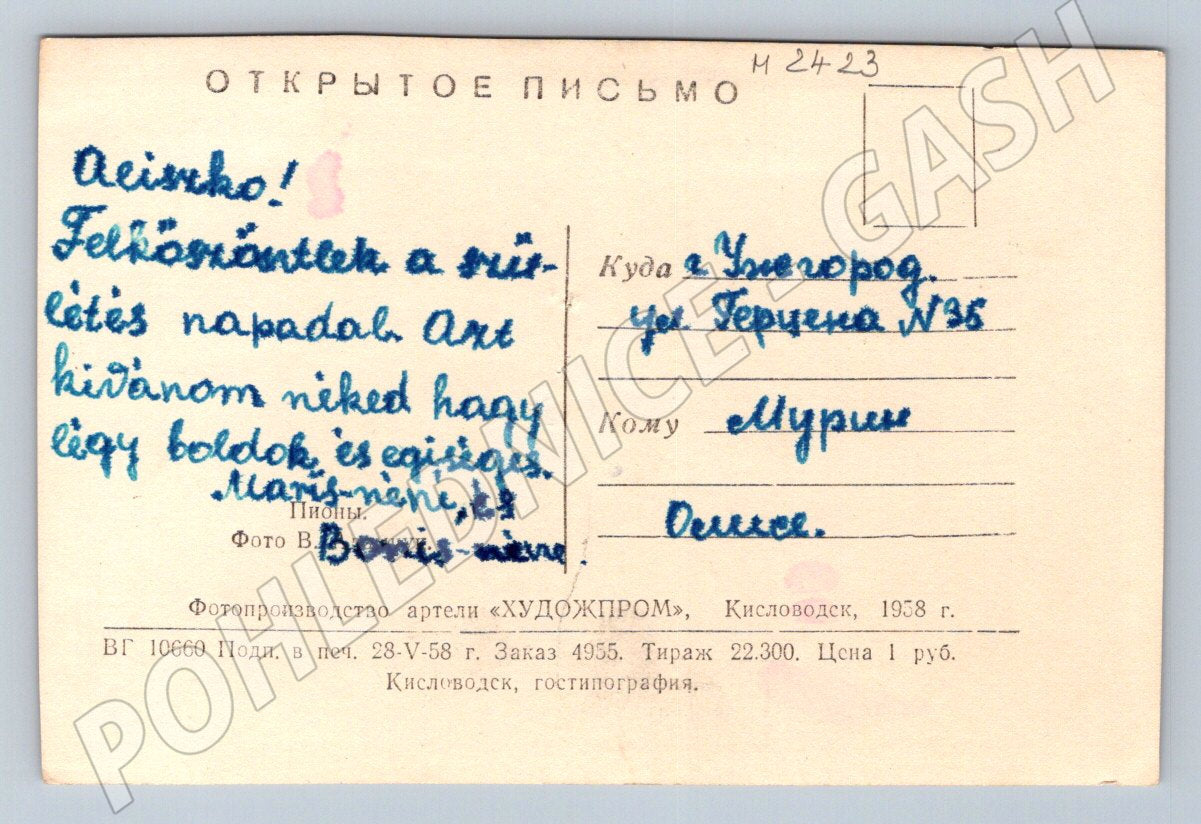 ОТКРЫТОЕ ПИСЬМО
н 2423
Aliszko!
Felköszöntlek a szü-
létés napadal. Azt
kivánom néked hagy
légy boldok és egiségés.
Maris-néni, és
Boris-
Пионы.
Фото В.
Куда г. Ужгород.
ул. Герцена N 36
Кому Мурин
Фотопроизводство артели «ХУДОЖПРОМ», Кисловодск, 1958 г.
ВГ 10660 Подп. в печ. 28-V-58 г. Заказ 4955. Тираж 22.300. Цена 1 руб.
Кисловодск, гостипография.
POHLEDNICE_GASH